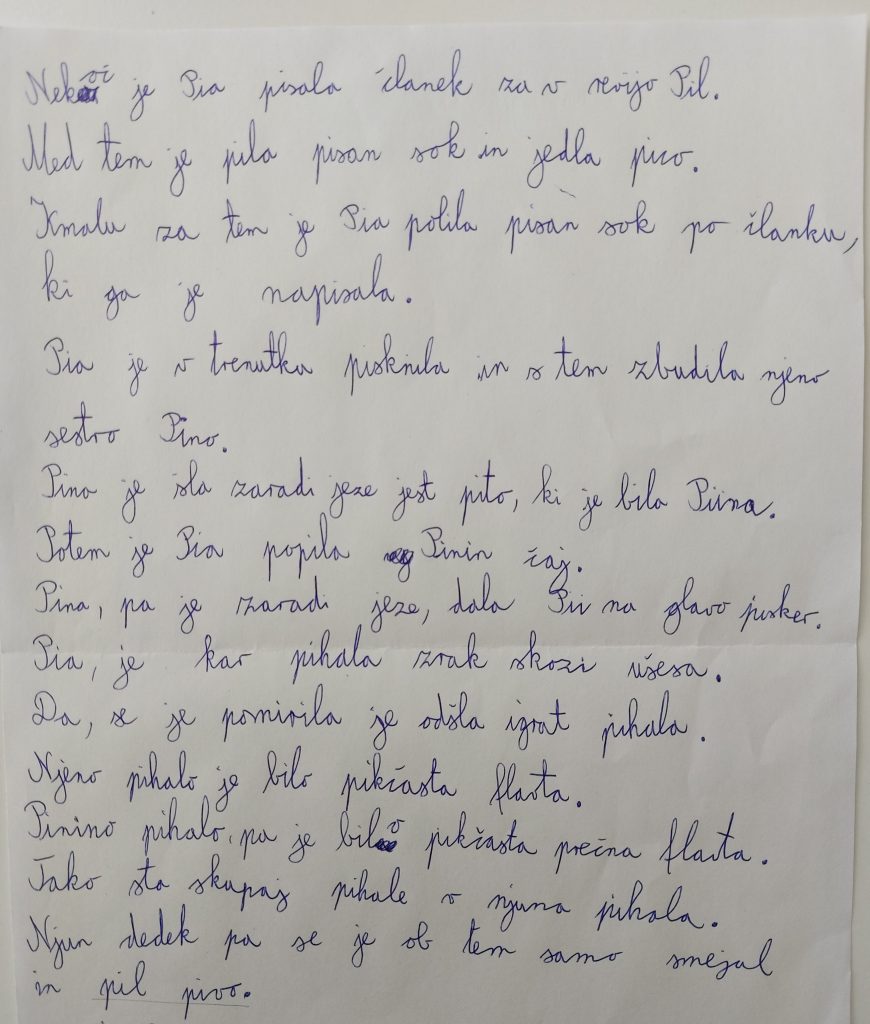 Nekoč je Pia pisala članek za v revijo Pil.
Med tem je pila pisan sok in jedla pico.
Kmalu za tem je Pia polila pisan sok po članku,
ki ga je napisala.
Pia je v trenutku pisknila in s tem zbudila njeno
sestro Pino.
Pina je šla zaradi jeze jest pito, ki je bila Piina.
Potem je Pia popila Pinin čaj.
Pina, pa je zaradi jeze, dala Pii na glavo pisker.
Pia, je kar pihala zrak skozi ušesa.
Da, se je pomirila je odšla igrat pihala.
Njeno pihalo je bilo pikčasta flavta.
Pinino pihalo, pa je bilo pikčasta prečna flavta.
Tako sta skupaj pihale v njuna pihala.
Njun dedek pa se je ob tem samo smejal
in pil pivo.